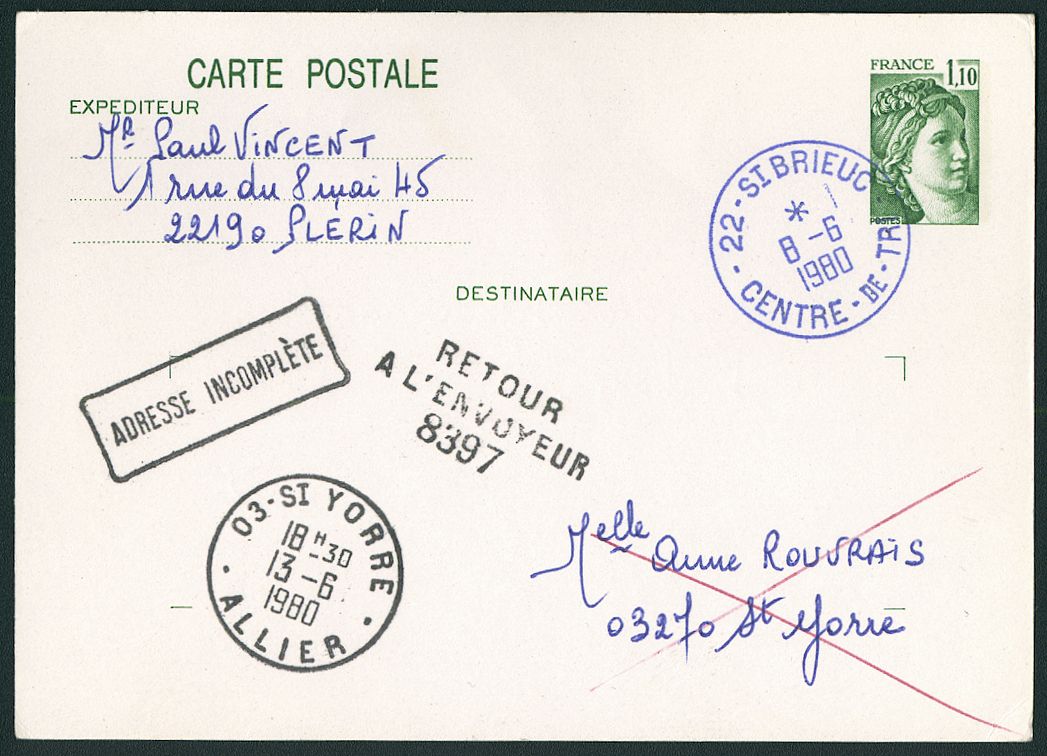 CARTE POSTALE
FRANCE 1,10
POSTES
EXPEDITEUR
Mr Paul VINCENT
1 rue du 8 mai 45
22190 PLERIN
22 - ST BRIEUC
*
8 - 6
1980
CENTRE - DE - TR
DESTINATAIRE
ADRESSE INCOMPLÈTE
RETOUR
A L'ENVOYEUR
8397
03 - ST YORRE
18 H - 30
13 - 6
1980
ALLIER
Melle Anne ROUVRAIS
03270 St Yorre